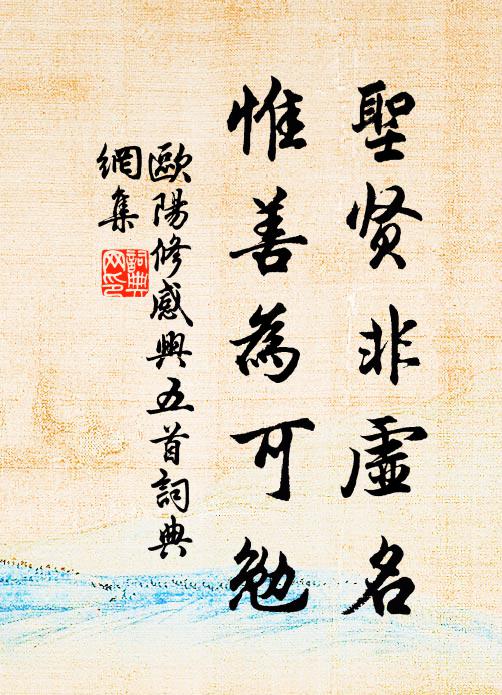 聖贤非虛名
惟善為可勉
歐陽修感興五首詞典
網集
詞典
网印